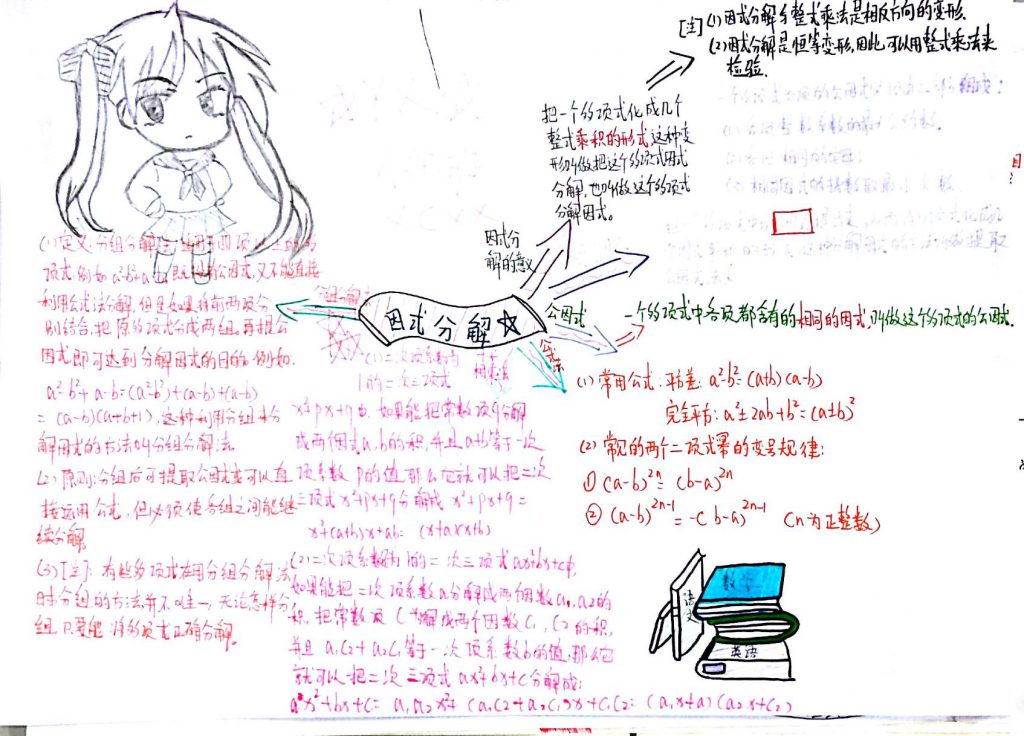 [注] (1)因式分解与整式乘法是相反方向的变形.
(2)因式分解是恒等变形,因此可以用整式乘法来
检验.
把一个多项式化成几个
整式乘积的形式,这种变
形叫做把这个多项式因式
分解,也叫做这个多项式
分解因式。
因式分
解的意义
因式分解
公因式
一个多项式中各项都含有的相同的因式,叫做这个多项式的公因式.
公式法
(1) 常用公式:平方差: a²-b²=(a+b)(a-b)
完全平方: a²±2ab+b²=(a±b)²
(2) 常见的两个二项式幂的变号规律:
① (a-b)²ⁿ=(b-a)²ⁿ
② (a-b)²ⁿ⁻¹=-(b-a)²ⁿ⁻¹ (n为正整数)
分组分解
(1)定义:分组分解法,适用于四项以上的多
项式,例如a²-b²+a-b既没有公因式,又不能直接
利用公式法分解,但是如果将前两项分
别结合,把原多项式分成两组,再提公
因式,即可达到分解因式的目的.例如.
a²-b²+a-b=(a²-b²)+(a-b)
=(a-b)(a+b+1),这种利用分组来分
解因式的方法叫分组分解法.
(2)原则:分组后可提取公因式或可以直
接运用公式,但必须使各组之间能继
续分解.
(3)[注]:有些多项式在用分组分解法
时,分组的方法并不唯一,无论怎样分
组,只要能将多项式正确分解。
(1)二次项系数为
1的二次三项式
x²+px+q中,如果能把常数项q分解
成两个因式a,b的积,并且a+b等于一次
项系数p的值,那么它就可以把二次
三项式x²+px+q分解成x²+px+q=
x²+(a+b)x+ab=(x+a)(x+b)
(2)二次项系数为1的二次三项式ax²+bx+c中,
如果能把二次项系数a分解成两个因数a₁,a₂的
积,把常数项c分解成两个因数c₁,c₂的积,
并且a₁c₂+a₂c₁等于一次项系数b的值,那么它
就可以把二次三项式ax²+bx+c分解成:
a²x²+bx+c=a₁a₂x²+(a₁c₂+a₂c₁)x+c₁c₂=(a₁x+a)(a₂x+c₂)
数学
语文
英语